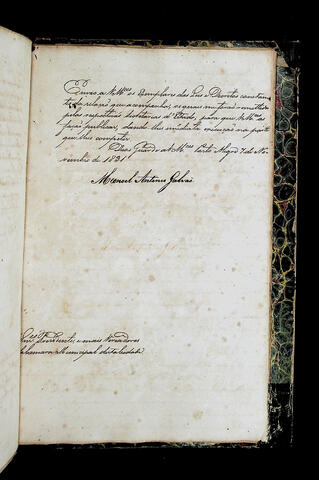 Envio a V.Mces os Exemplares das Leis e Decretos constan
te da relação que acompanha, e que me forão remettidos
pelas respectivas Secretarias d'Estado, para que V.Mces as
fação publicar, dando lhes immediata execução na parte
que lhes competir.
Deos Guarde a V.Mces Porto Alegre 7 de No
vembro de 1831
Manoel Antonio Galvão
Snres Presidente, e mais Vereadores
da Camara Municipal desta Cidade